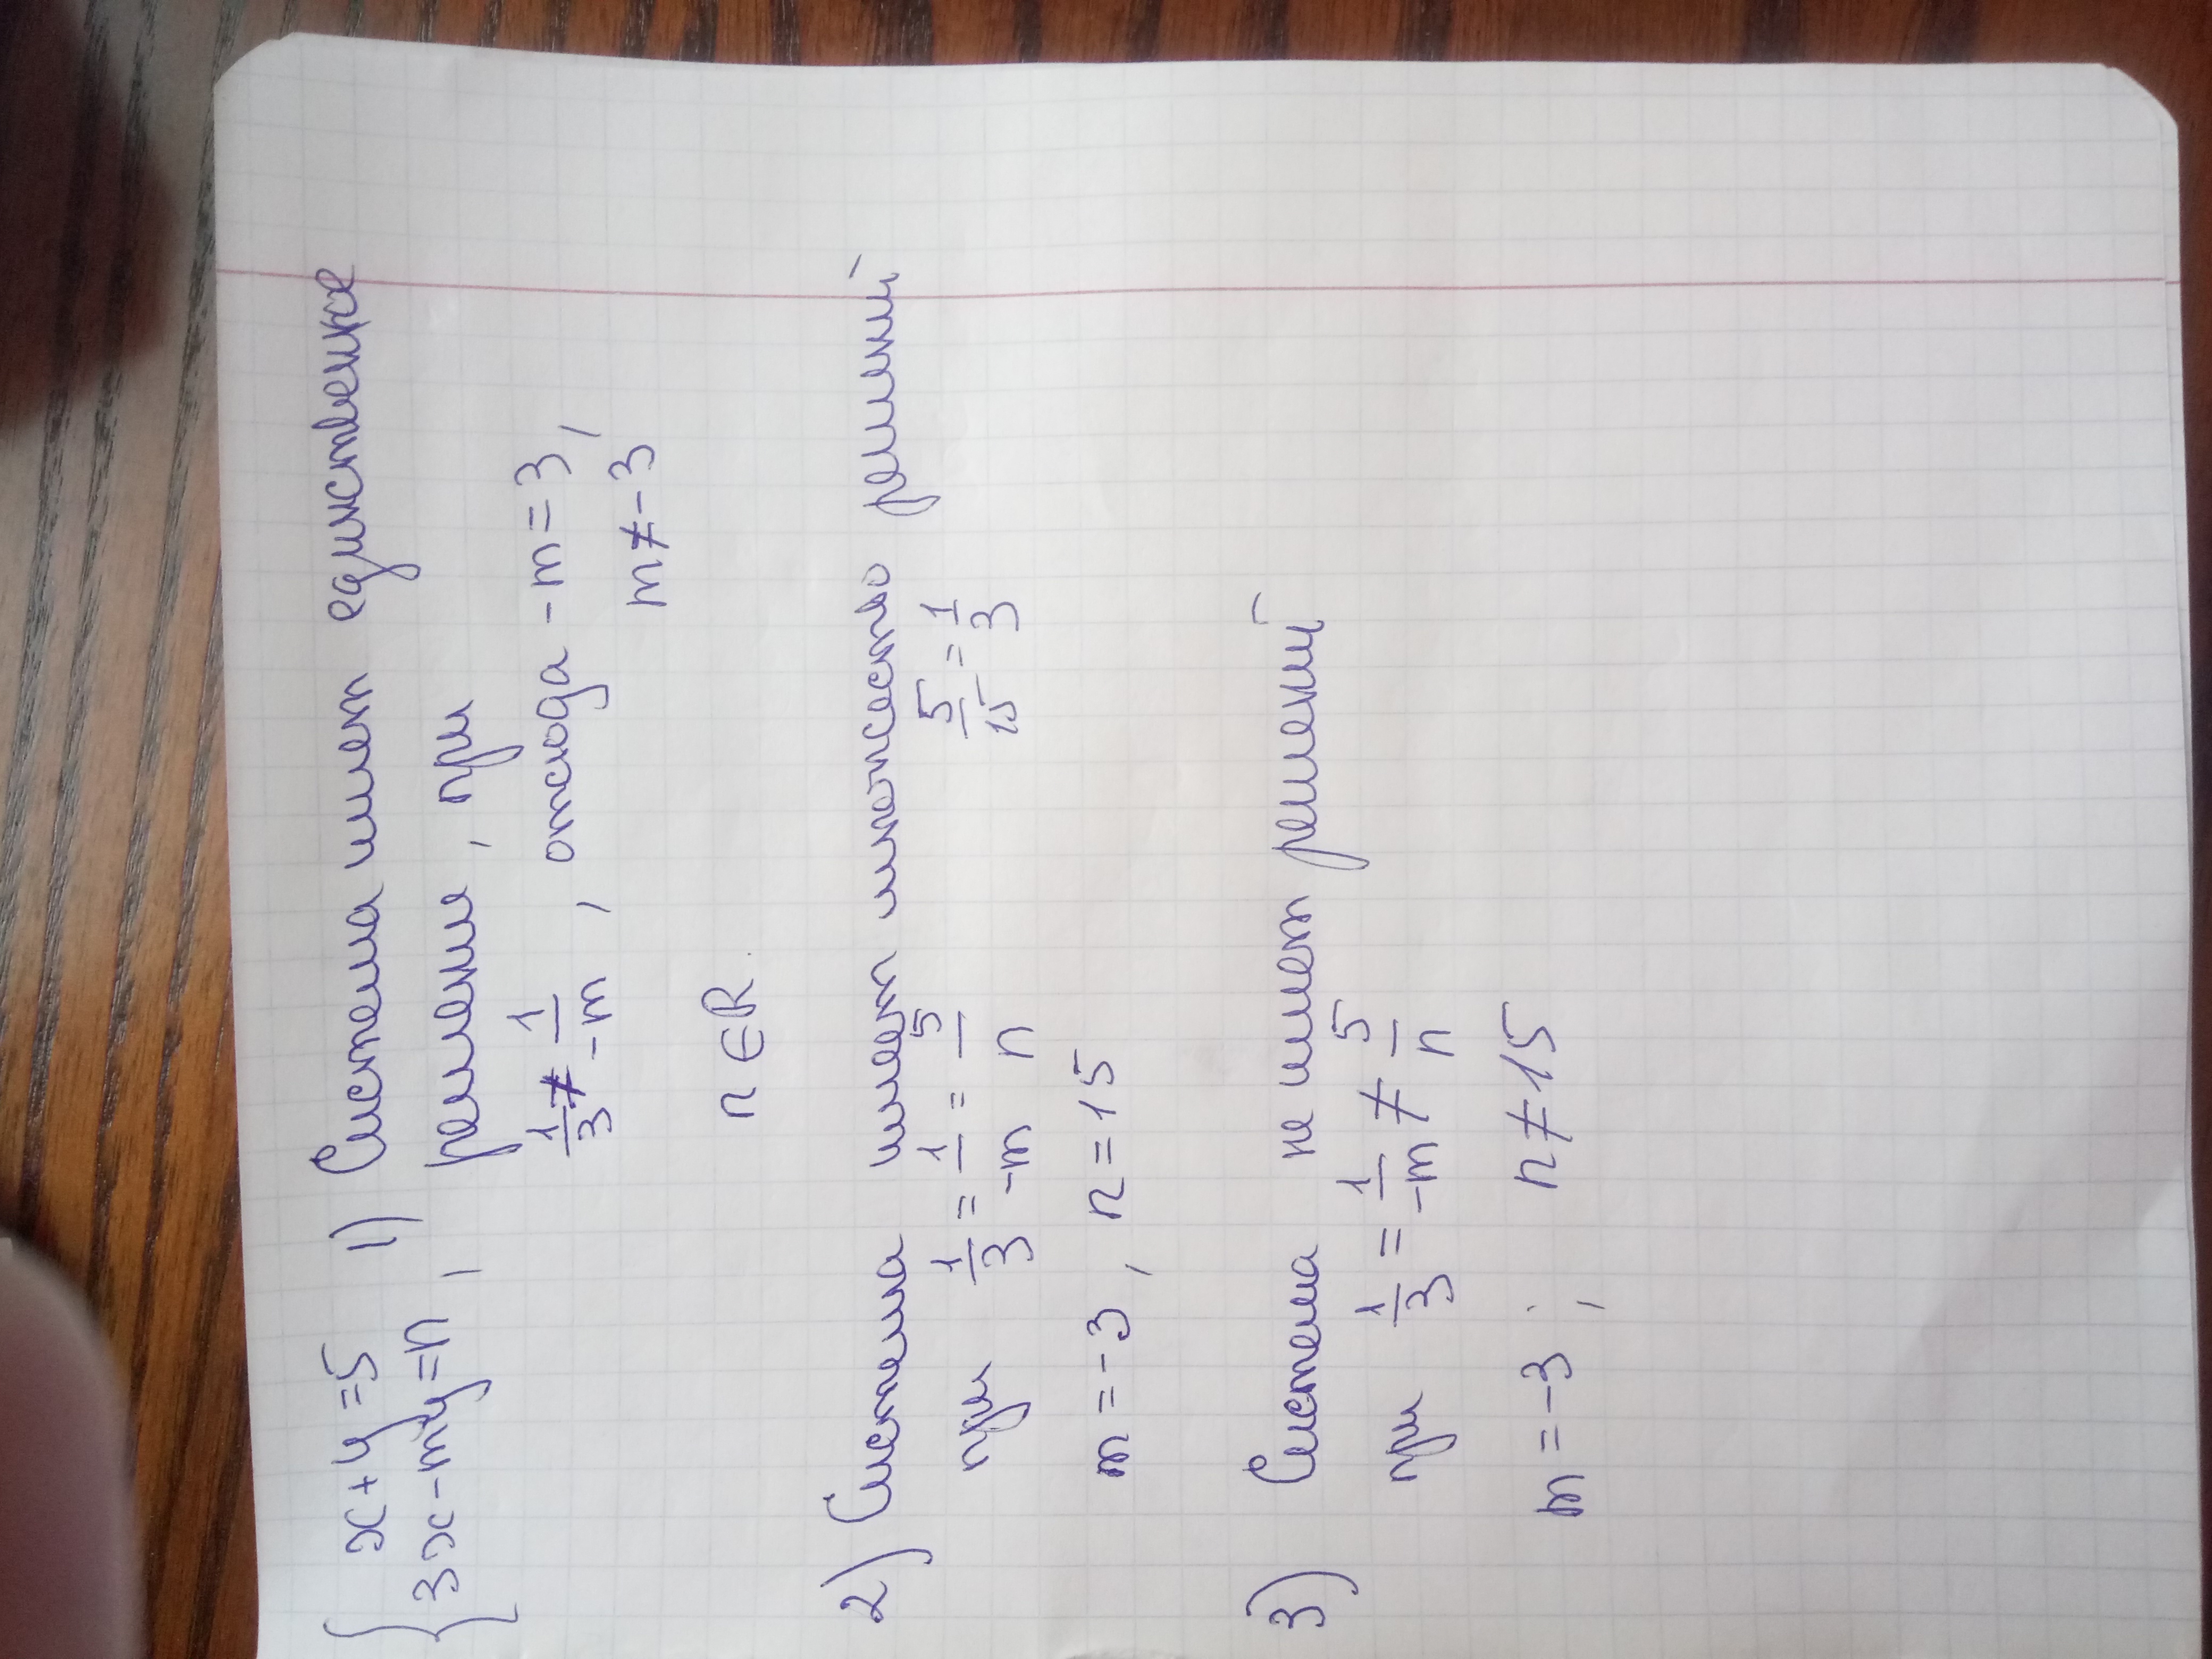 { x+y=5 1) Система имеет единственное
3x-my=n, решение, при
1/3 ≠ 1/-m, отсюда -m=3,
m≠-3
n∈R.
2) Система имеет множество решений
при 1/3 = 1/-m = 5/n 5/15 = 1/3
m=-3, n=15
3) Система не имеет решений
при 1/3 = 1/-m ≠ 5/n
m=-3; n≠15